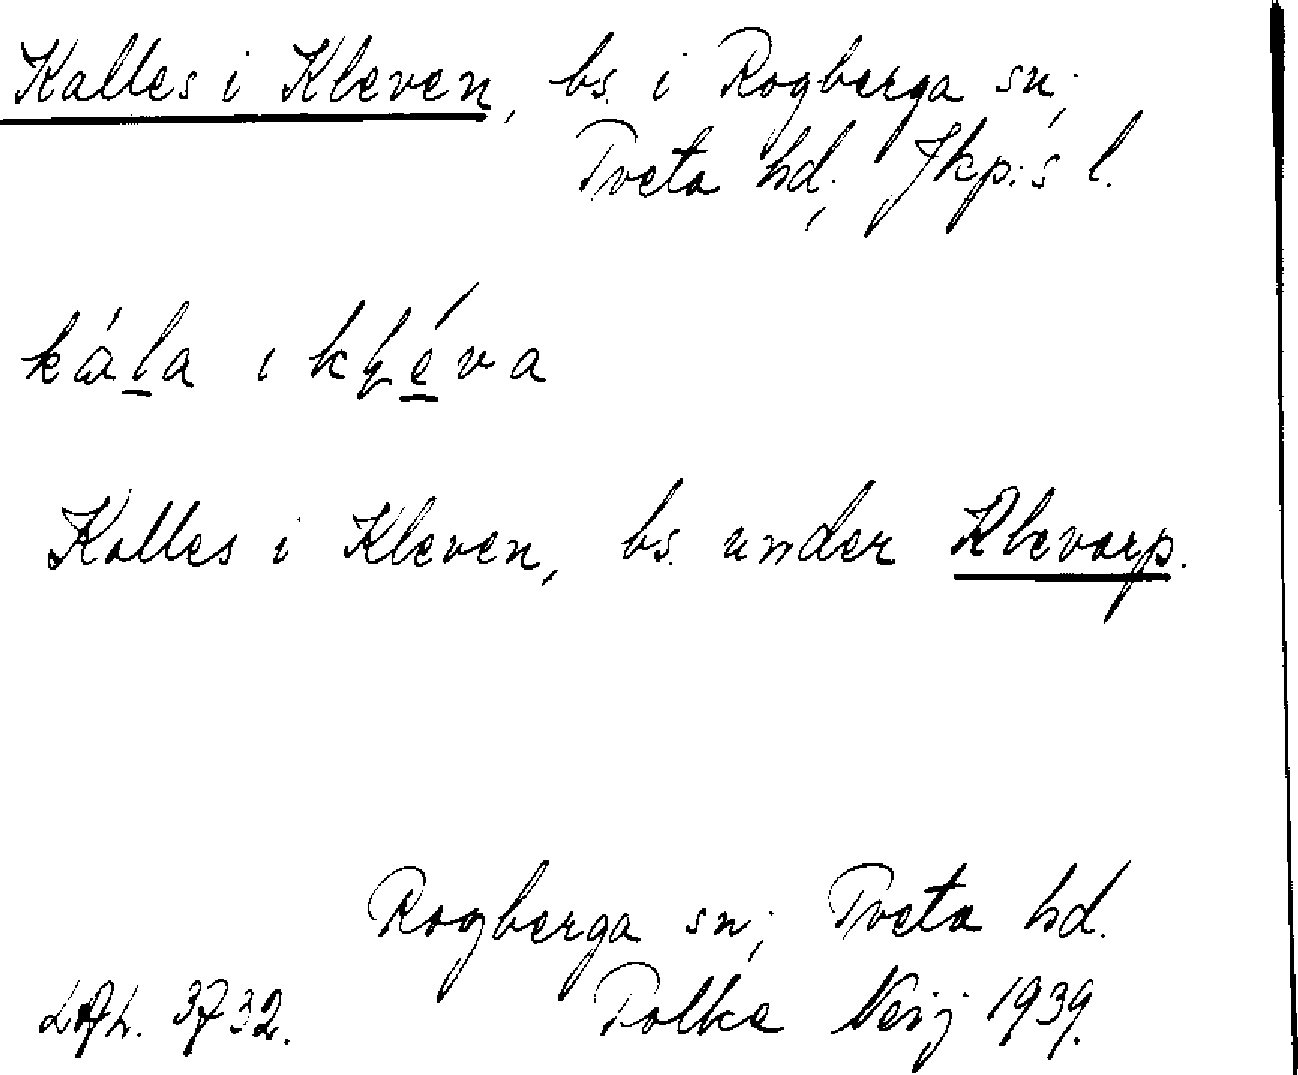 Kalles i Kleven, bs. i Rogberga sn;
Tveta hd; Jkp:s l.
kála i kḷéva
Kalles i Kleven, bs. under Klevarp.
Rogberga sn; Tveta hd.
LAL. 3732. Tolke Neij 1939.